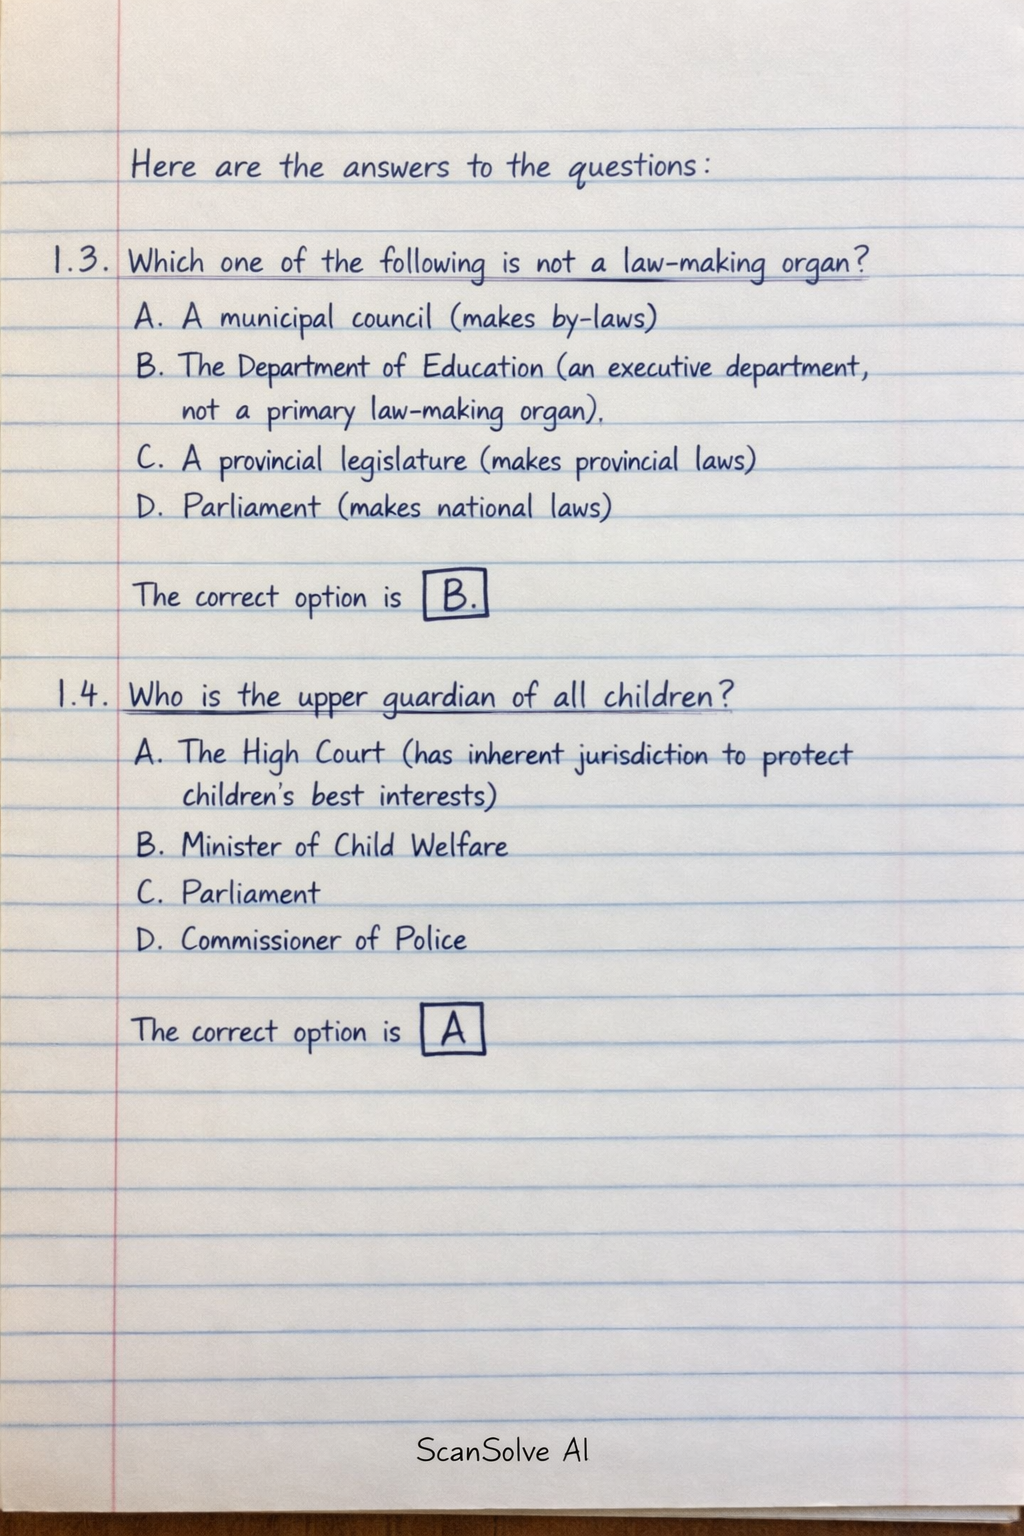 Here are the answers to the questions:
1.3. Which one of the following is not a law-making organ?
A. A municipal council (makes by-laws)
B. The Department of Education (an executive department,
not a primary law-making organ).
C. A provincial legislature (makes provincial laws)
D. Parliament (makes national laws)
The correct option is B.
1.4. Who is the upper guardian of all children?
A. The High Court (has inherent jurisdiction to protect
children's best interests)
B. Minister of Child Welfare
C. Parliament
D. Commissioner of Police
The correct option is A
ScanSolve AI